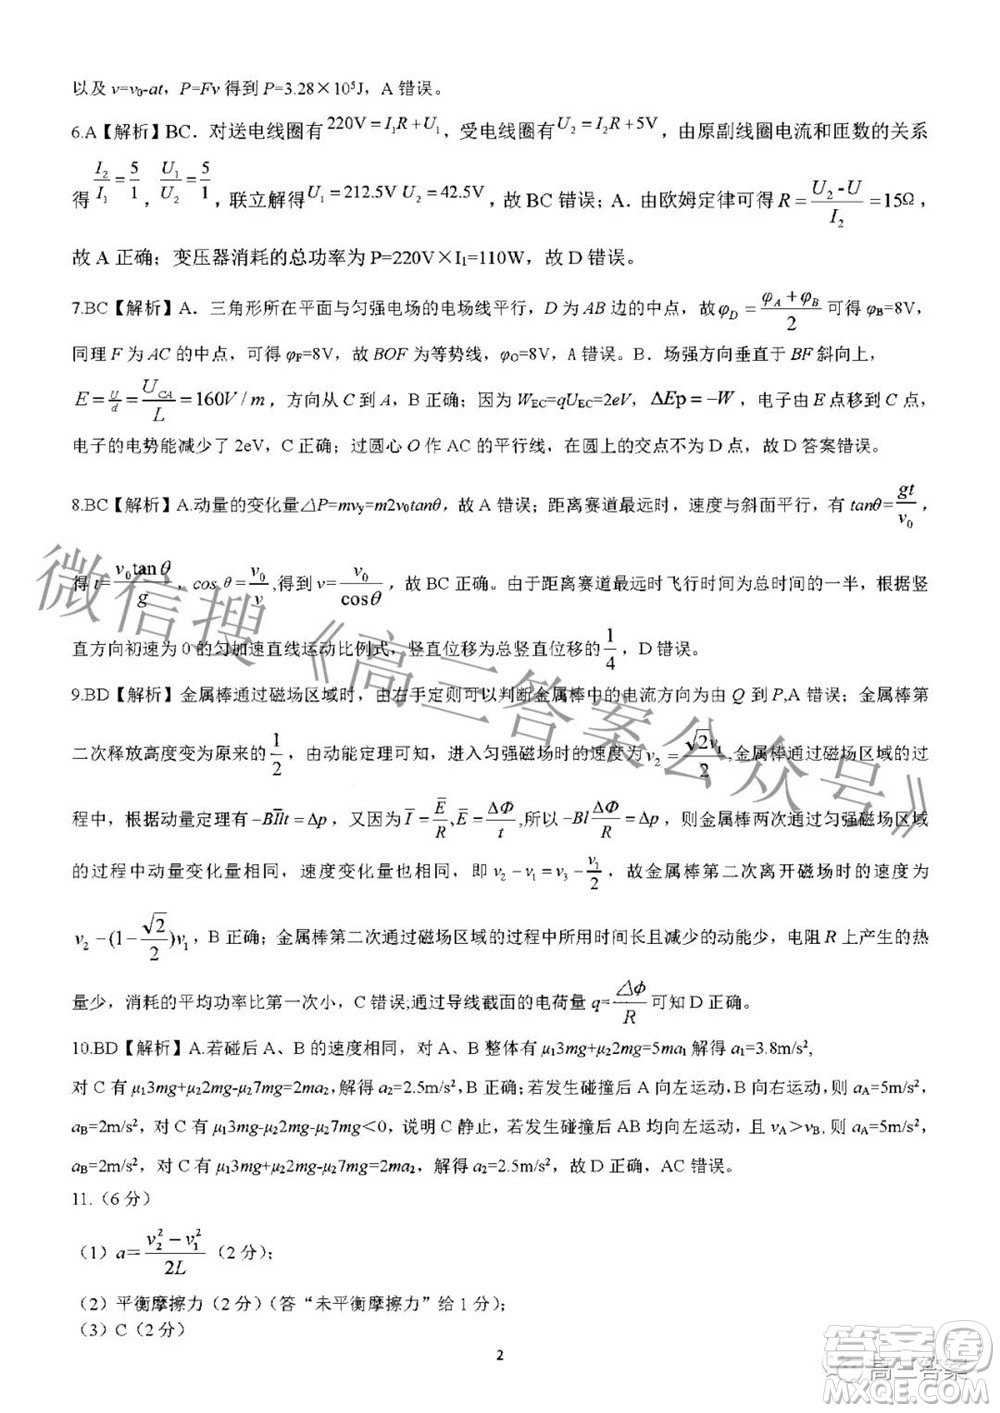 以及 v=v₀-at，P=Fv 得到 P=3.28×10⁵J，A 错误。
6.A【解析】BC．对送电线圈有 220V = I₁R + U₁，受电线圈有 U₂ = I₂R + 5V，由原副线圈电流和匝数的关系
得 I₂/I₁ = 5/1，U₁/U₂ = 5/1，联立解得 U₁ = 212.5V U₂ = 42.5V，故 BC 错误；A．由欧姆定律可得 R = (U₂ - U)/I₂ = 15Ω，
故 A 正确；变压器消耗的总功率为 P=220V×I₁=110W，故 D 错误。
7.BC【解析】A．三角形所在平面与匀强电场的电场线平行，D 为 AB 边的中点，故 φ_D = (φ_A + φ_B)/2 可得 φ_B=8V，
同理 F 为 AC 的中点，可得 φ_F=8V，故 BOF 为等势线，φ_O=8V，A 错误。B．场强方向垂直于 BF 斜向上，
E = U/d = U_CA/L = 160V / m，方向从 C 到 A，B 正确；因为 W_EC=qU_EC=2eV，ΔEp = -W，电子由 E 点移到 C 点，
电子的电势能减少了 2eV，C 正确；过圆心 O 作 AC 的平行线，在圆上的交点不为 D 点，故 D 答案错误。
8.BC【解析】A.动量的变化量△P=mv_y=m2v₀tanθ，故 A 错误；距离赛道最远时，速度与斜面平行，有 tanθ=gt/v₀，
得 t=v₀tanθ/g，cosθ=v₀/v,得到 v=v₀/cosθ，故 BC 正确。由于距离赛道最远时飞行时间为总时间的一半，根据竖
直方向初速为 0 的匀加速直线运动比例式，竖直位移为总竖直位移的 1/4，D 错误。
9.BD【解析】金属棒通过磁场区域时，由右手定则可以判断金属棒中的电流方向为由 Q 到 P,A 错误；金属棒第
二次释放高度变为原来的 1/2，由动能定理可知，进入匀强磁场时的速度为 v₂ = √2v₁/2，金属棒通过磁场区域的过
程中，根据动量定理有 -BI̅lt = Δp，又因为 I̅ = E̅/R, E̅ = ΔΦ/t,所以 -Bl ΔΦ/R = Δp，则金属棒两次通过匀强磁场区域
的过程中动量变化量相同，速度变化量也相同，即 v₂ - v₁ = v₃ - v₁/2，故金属棒第二次离开磁场时的速度为
v₂ - (1 - √2/2)v₁，B 正确；金属棒第二次通过磁场区域的过程中所用时间长且减少的动能少，电阻 R 上产生的热
量少，消耗的平均功率比第一次小，C 错误;通过导线截面的电荷量 q=△Φ/R 可知 D 正确。
10.BD【解析】A.若碰后 A、B 的速度相同，对 A、B 整体有 μ₁3mg+μ₂2mg=5ma₁ 解得 a₁=3.8m/s²,
对 C 有 μ₁3mg+μ₂2mg-μ₂7mg=2ma₂，解得 a₂=2.5m/s²，B 正确；若发生碰撞后 A 向左运动，B 向右运动，则 a_A=5m/s²，
a_B=2m/s²，对 C 有 μ₁3mg-μ₂2mg-μ₂7mg＜0，说明 C 静止，若发生碰撞后 AB 均向左运动，且 v_A＞v_B, 则 a_A=5m/s²，
a_B=2m/s²，对 C 有 μ₁3mg+μ₂2mg-μ₂7mg=2ma₂，解得 a₂=2.5m/s²，故 D 正确，AC 错误。
11.（6 分）
（1）a=(v₂² - v₁²)/2L（2 分）；
（2）平衡摩擦力（2 分）（答“未平衡摩擦力”给 1 分）；
（3）C（2 分）
2
微信搜《高三答案公众号》
答案圈
高三答案
MXQE.COM